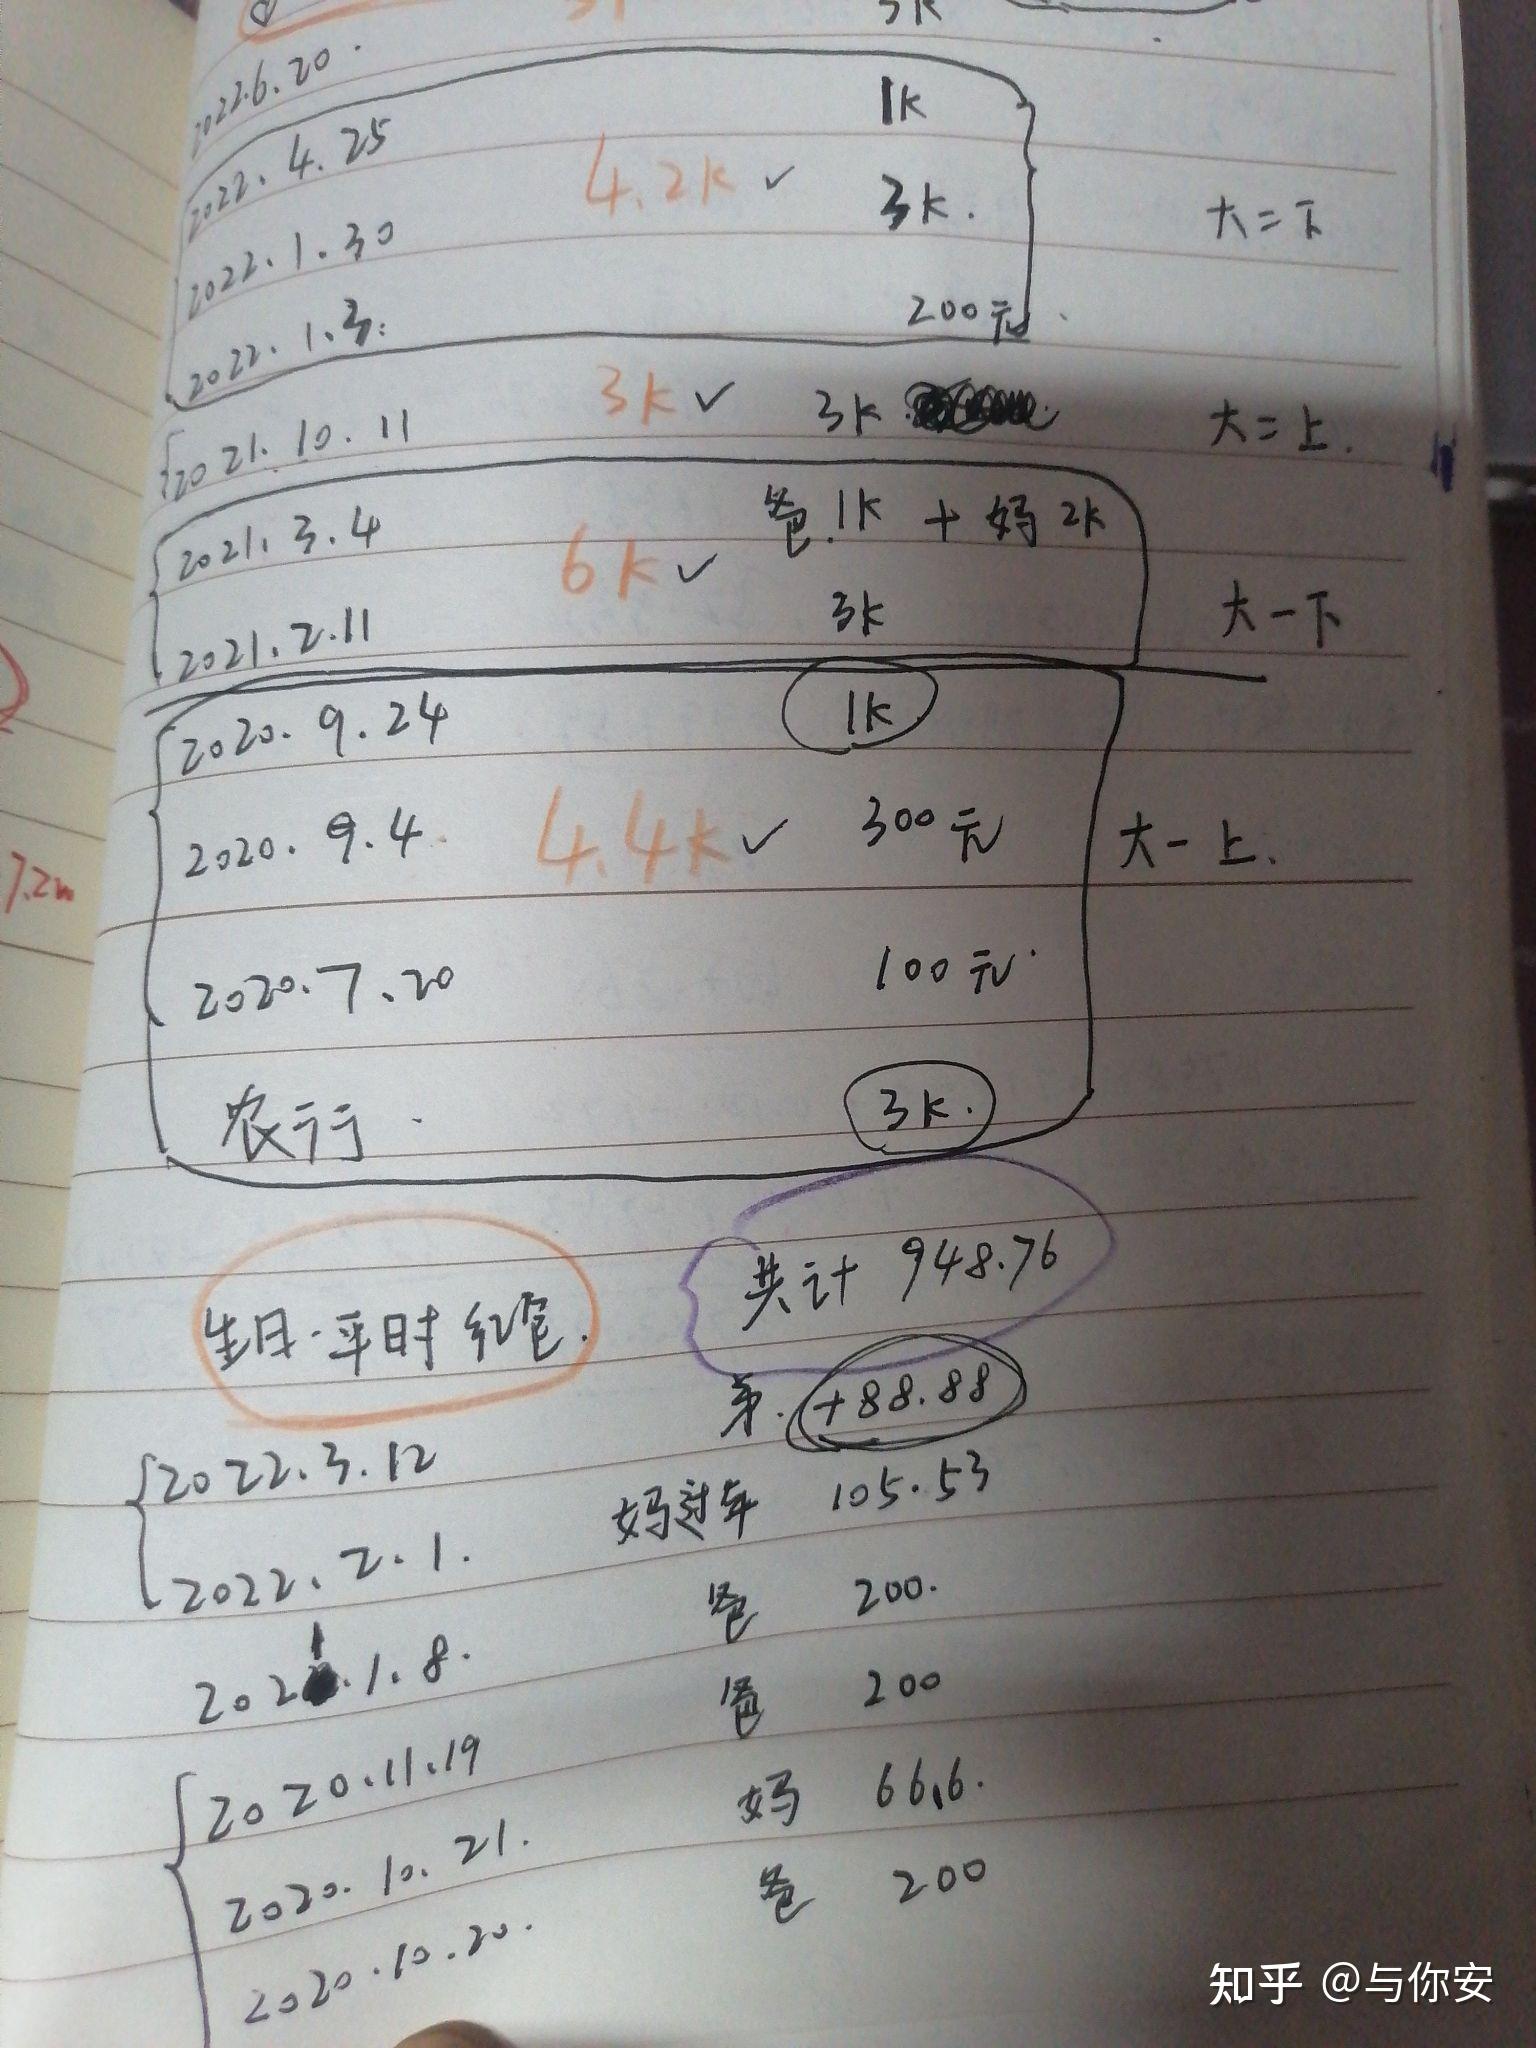 3K
2022.6.20.
1K
2022.4.25 4.2K ✓ 3K. 大二下
2022.1.30
200元
2022.1.3.
2021.10.11 3K ✓ 3K 大二上.
2021.3.4 6K ✓ 爸.1K + 妈2K
2021.2.11 3K 大一下
2020.9.24 1K
2020.9.4. 4.4K ✓ 300元 大一上.
2020.7.20 100元
农行. 3K.
生日·平时红包. 共计 948.76
弟. +88.88
2022.3.12 妈过年 105.53
2022.2.1. 爸 200.
2021.1.8. 爸 200
2020.11.19 妈 66.6.
2020.10.21. 爸 200
2020.10.20.
知乎 @与你安